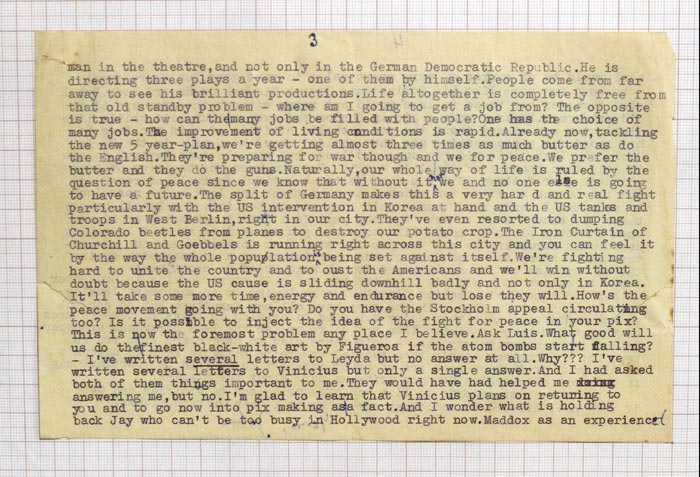 3
man in the theatre,and not only in the German Democratic Republic.He is
directing three plays a year - one of them by himself.People come from far
away to see his brilliant productions.Life altogether is completely free from
that old standby problem - where am I going to get a job from? The opposite
is true - how can the many jobs be filled with people?One has the choice of
many jobs.The improvement of living cnnditions is rapid.Already now,tackling
the new 5 year-plan,we're getting almost three times as much butter as do
the English.They're preparing for war though and we for peace.We prefer the
butter and they do the guns.Naturally,our whole way of life is ruled by the
question of peace since we know that without it we and no one else is going
to have a future.The split of Germany makes this a very har d and real fight
particularly with the US intervention in Korea at hand and the US tanks and
troops in West Berlin,right in our city.They've even resorted to dumping
Colorado beetles from planes to destroy our potato crop.The Iron Curtain of
Churchill and Goebbels is running right across this city and you can feel it
by the way the whole population being set against itself.We're fighting
hard to unite the country and to oust the Americans and we'll win without
doubt because the US cause is sliding downhill badly and not only in Korea.
It'll take some more time,energy and endurance but lose they will.How's the
peace movement going with you? Do you have the Stockholm appeal circulating
too? Is it possible to inject the idea of the fight for peace in your pix?
This is now the foremost problem any place I believe.Ask Luis.What good will
us do the finest black-white art by Figueroa if the atom bombs start falling?
- I've written several letters to Leyda but no answer at all.Why??? I've
written several letters to Vinicius but only a single answer.And I had asked
both of them things important to me.They would have had helped me
answering me,but no.I'm glad to learn that Vinicius plans on returing to
you and to go now into pix making as a fact.And I wonder what is holding
back Jay who can't be too busy in Hollywood right now.Maddox as an experience